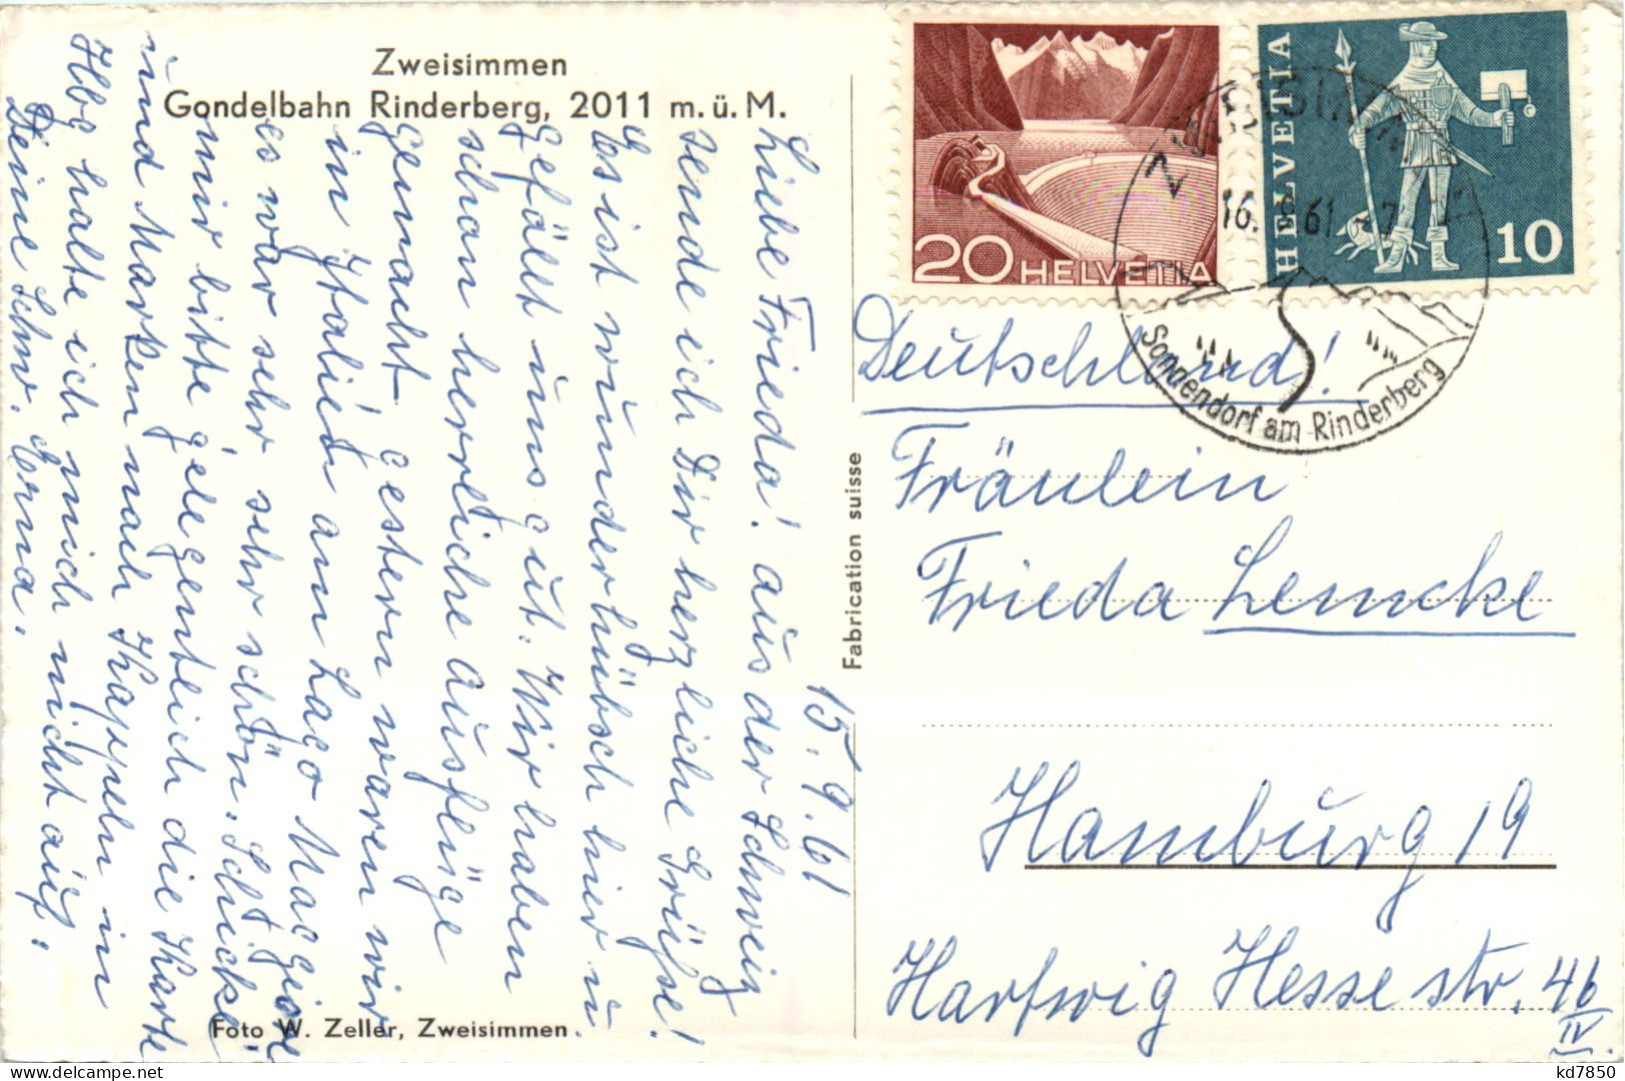 Zweisimmen
Gondelbahn Rinderberg, 2011 m. ü. M.
15. 9. 61
Liebe Frieda! aus der Schweiz
sende ich Dir herzliche Grüße!
Es ist wunderhübsch hier u
gefällt uns gut. Wir haben
schon herrliche Ausflüge
gemacht gestern waren wir
in Italien am Lago Maggiore
es war sehr sehr schön. Schicke
mir bitte gelegentlich die Karte
und Marken nach Kappeln in
Hbg halte ich mich nicht auf.
Deine Schw. Erna.
Foto W. Zeller, Zweisimmen.
Fabrication suisse
20 HELVETIA
HELVETIA
10
16. 61. - 7
Sonnendorf am Rinderberg
Deutschland!
Fräulein
Frieda Lemcke
Hamburg 19
Hartwig Hesse str. 46
IV.
kd7850